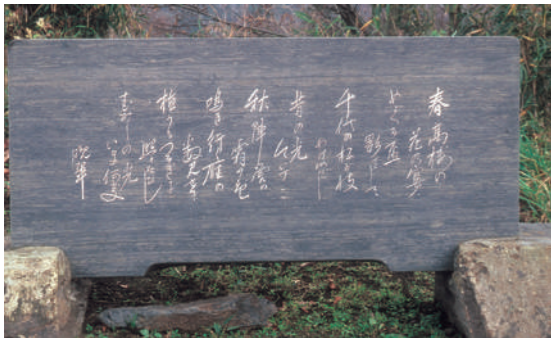 春高楼の
花の宴
めぐる盃
影さして
千代の松が枝
わけ出でし
昔の光
今いづこ
秋陣営の
霜の色
鳴き行雁の
数見せて
植うるつるぎに
照りそひし
むかしの光
いま何処
晩翠